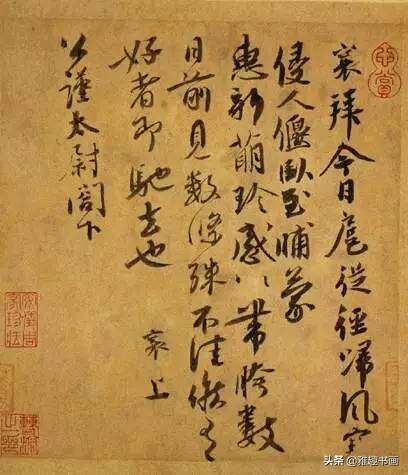 襄拜今日扈從徑歸風寒
侵人偃臥至晡蒙
惠新萌珍感珍感帶胯數
日前見數條殊不佳候有
好者即馳去也
襄上
公謹太尉閤下
頭条 @雅趣书画